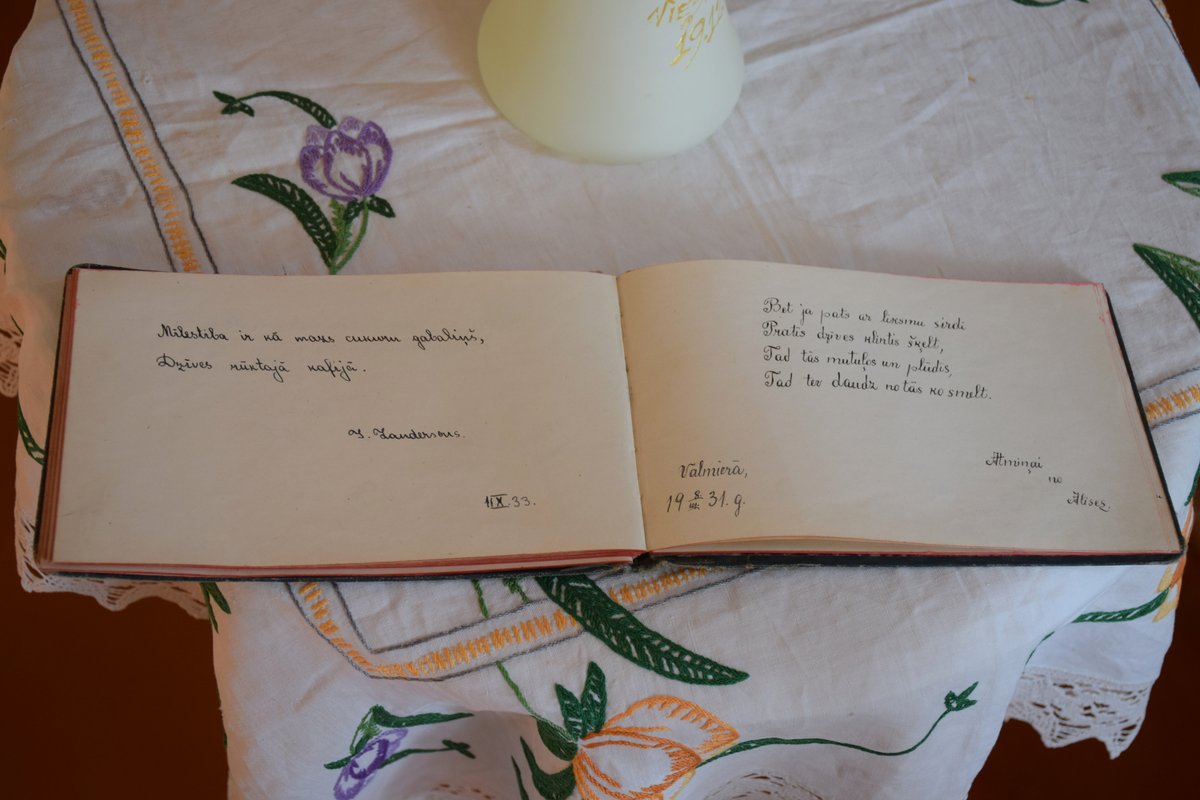 19.
Milestiba ir kā mass cukuru gabaliņš,
Dzīves rūktajā kafijā.
J. Zandersons.
1 IX 33.
Bet ja pats ar liksmu sirdi
Pratis dzīves klintis šķelt,
Tad tās mutuļos un plūdis,
Tad tev daudz no tās ko smelt.
Valmierā,
19 8. III. 31. g.
Atmiņai
no
Alises.